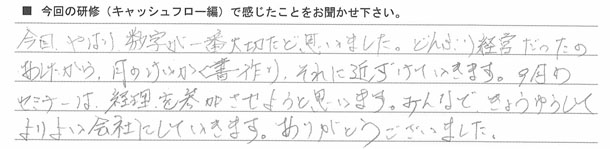 ■ 今回の研修（キャッシュフロー編）で感じたことをお聞かせ下さい。
今回、やはり数字が一番大切だと思いました。どんぶり経営だったの
あしたから、月のけいかく書作り、それに近ずけていきます。9月の
セミナーは、経理を参加させようと思います。みんなできょうゆうして
よりよい会社にしていきます。ありがとうございました。